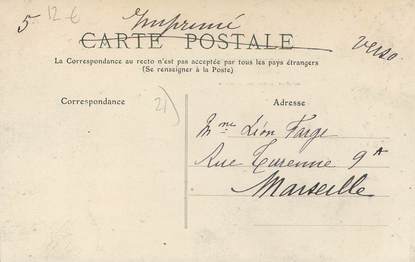 5 12-€
Imprimé
CARTE POSTALE
verso
La Correspondance au recto n'est pas acceptée par tous les pays étrangers
(Se renseigner à la Poste)
Correspondance
Adresse
21)
Mme Léon Farge
Rue Turenne 9A
Marseille